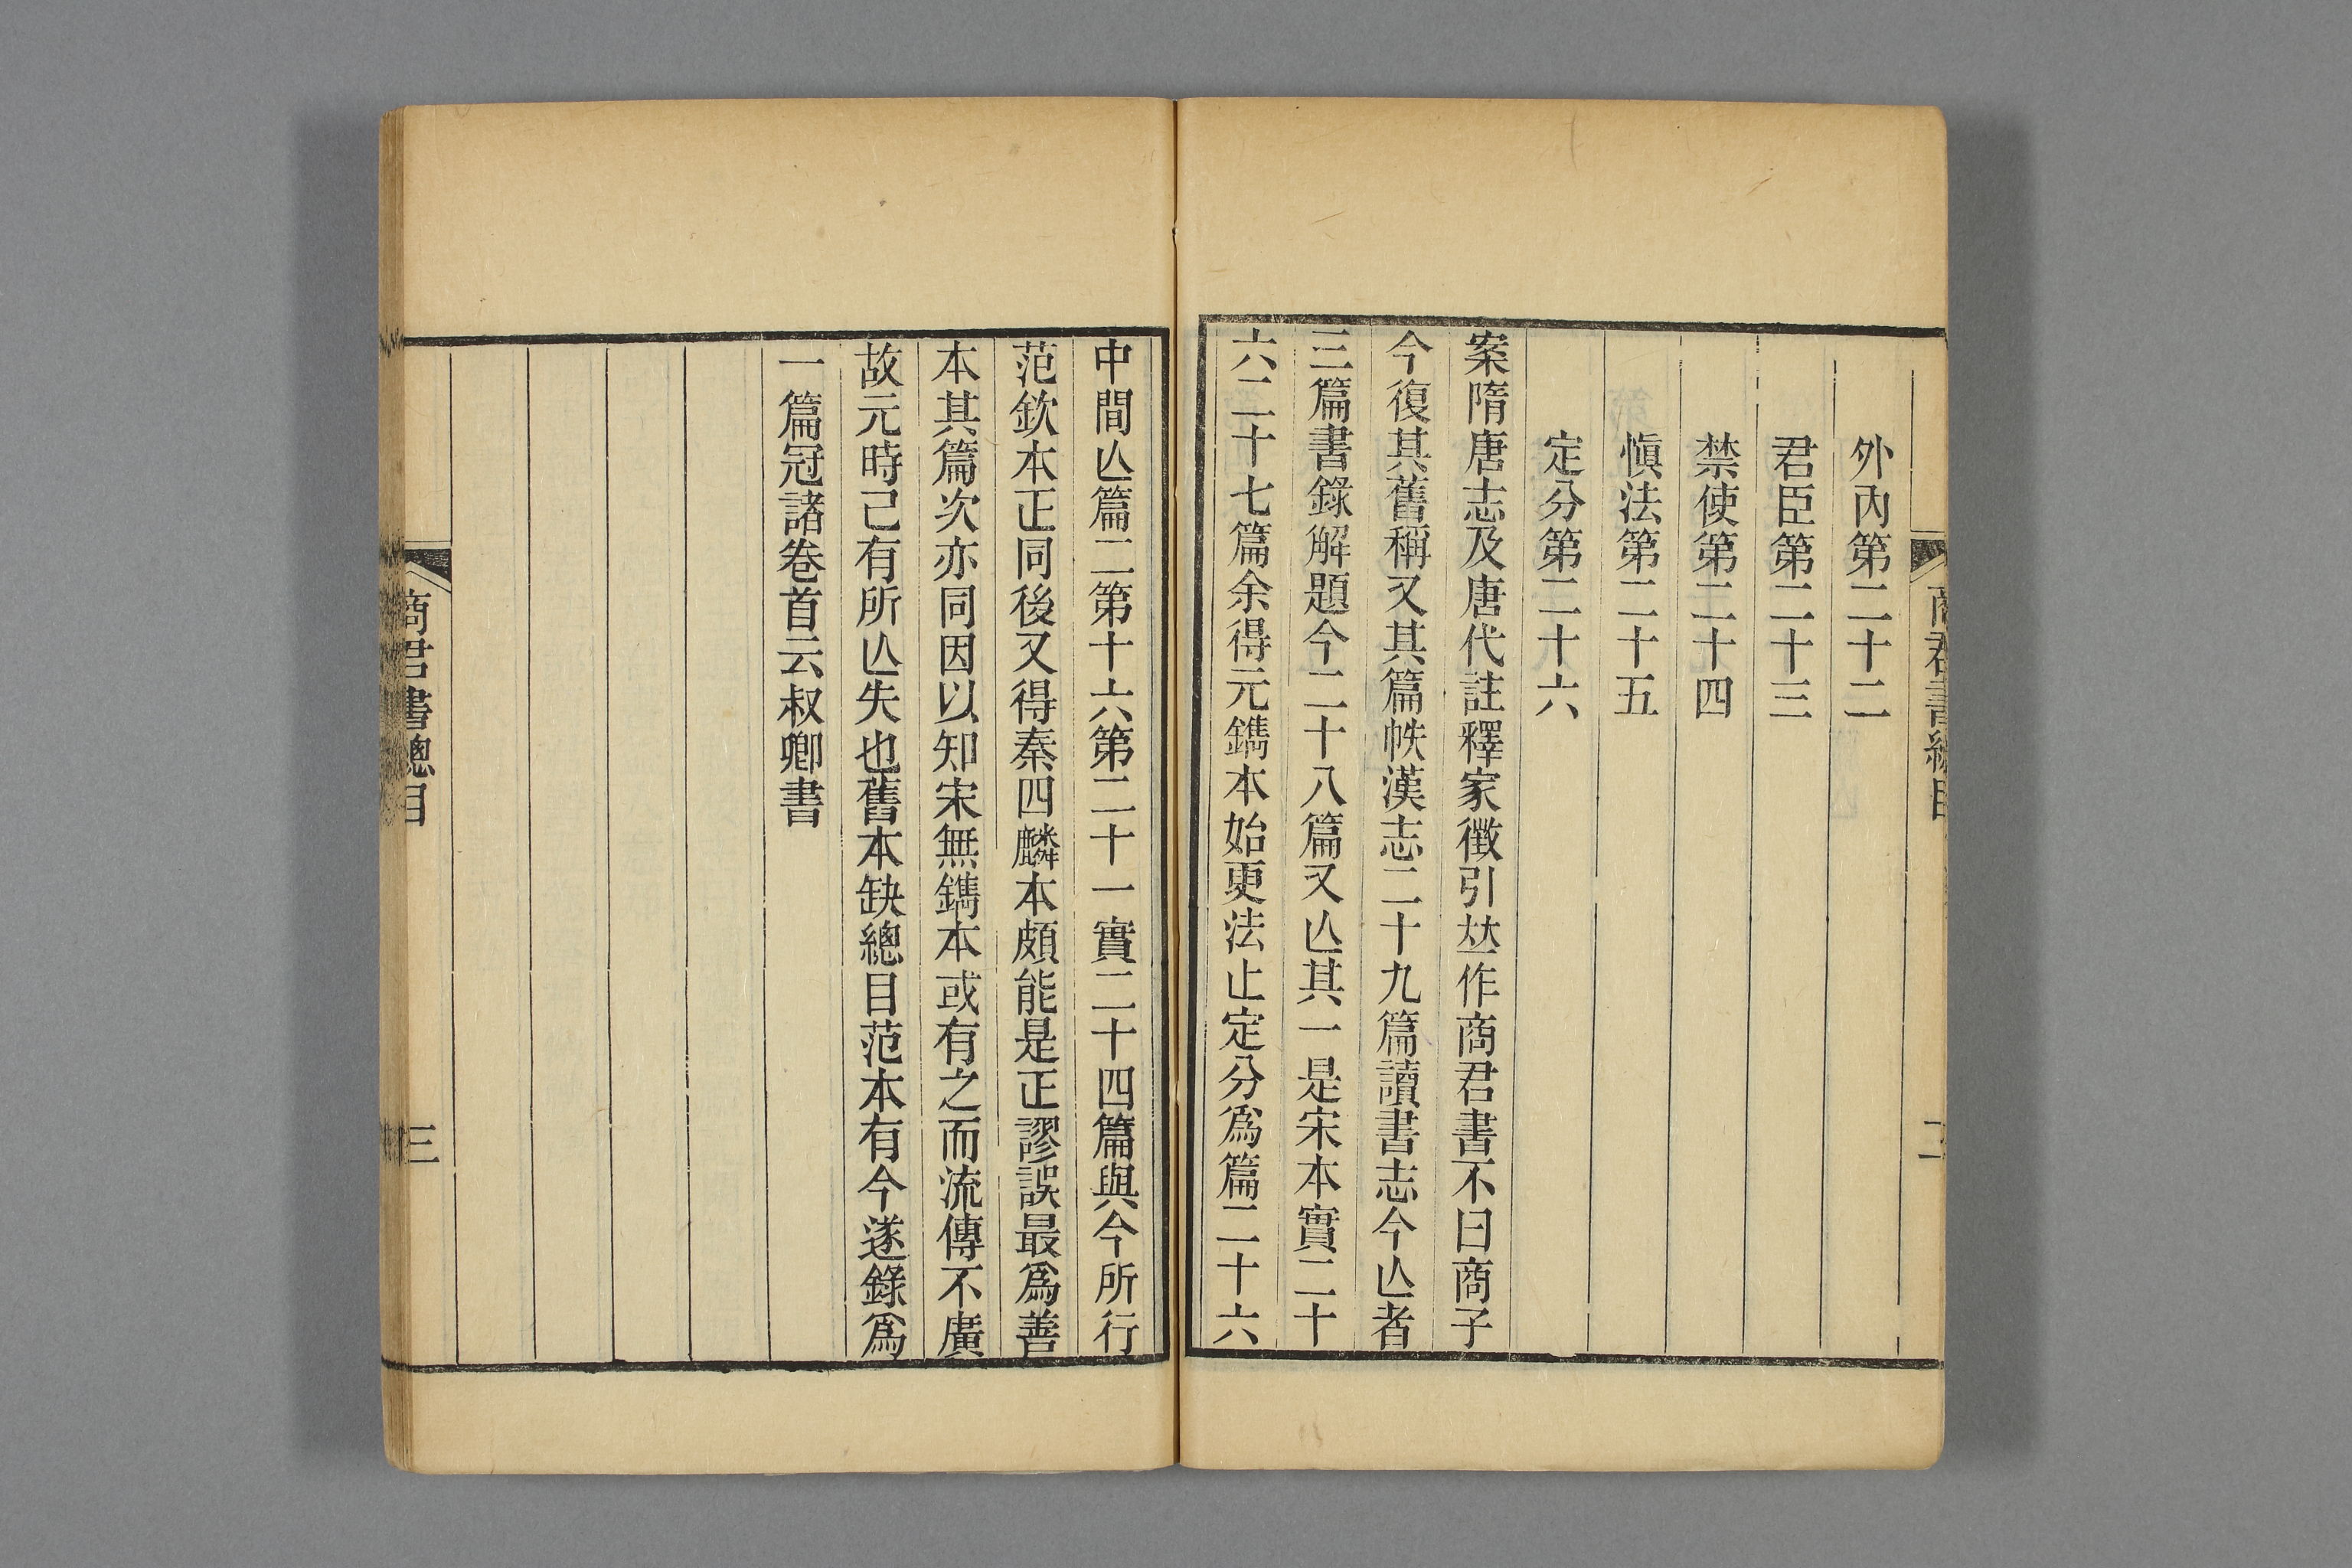 商君書總目
二
外內第二十二
君臣第二十三
禁使第二十四
愼法第二十五
定分第二十六
案隋唐志及唐代註釋家徵引竝作商君書不曰商子
今復其舊稱又其篇帙漢志二十九篇讀書志今亾者
三篇書錄解題今二十八篇又亾其一是宋本實二十
六二十七篇余得元鐫本始更法止定分爲篇二十六
中間亾篇二第十六第二十一實二十四篇與今所行
范欽本正同後又得秦四麟本頗能是正謬誤最爲善
本其篇次亦同因以知宋無鐫本或有之而流傳不廣
故元時已有所亾失也舊本缺總目范本有今遂錄爲
一篇冠諸卷首云叔卿書
商君書總目
三